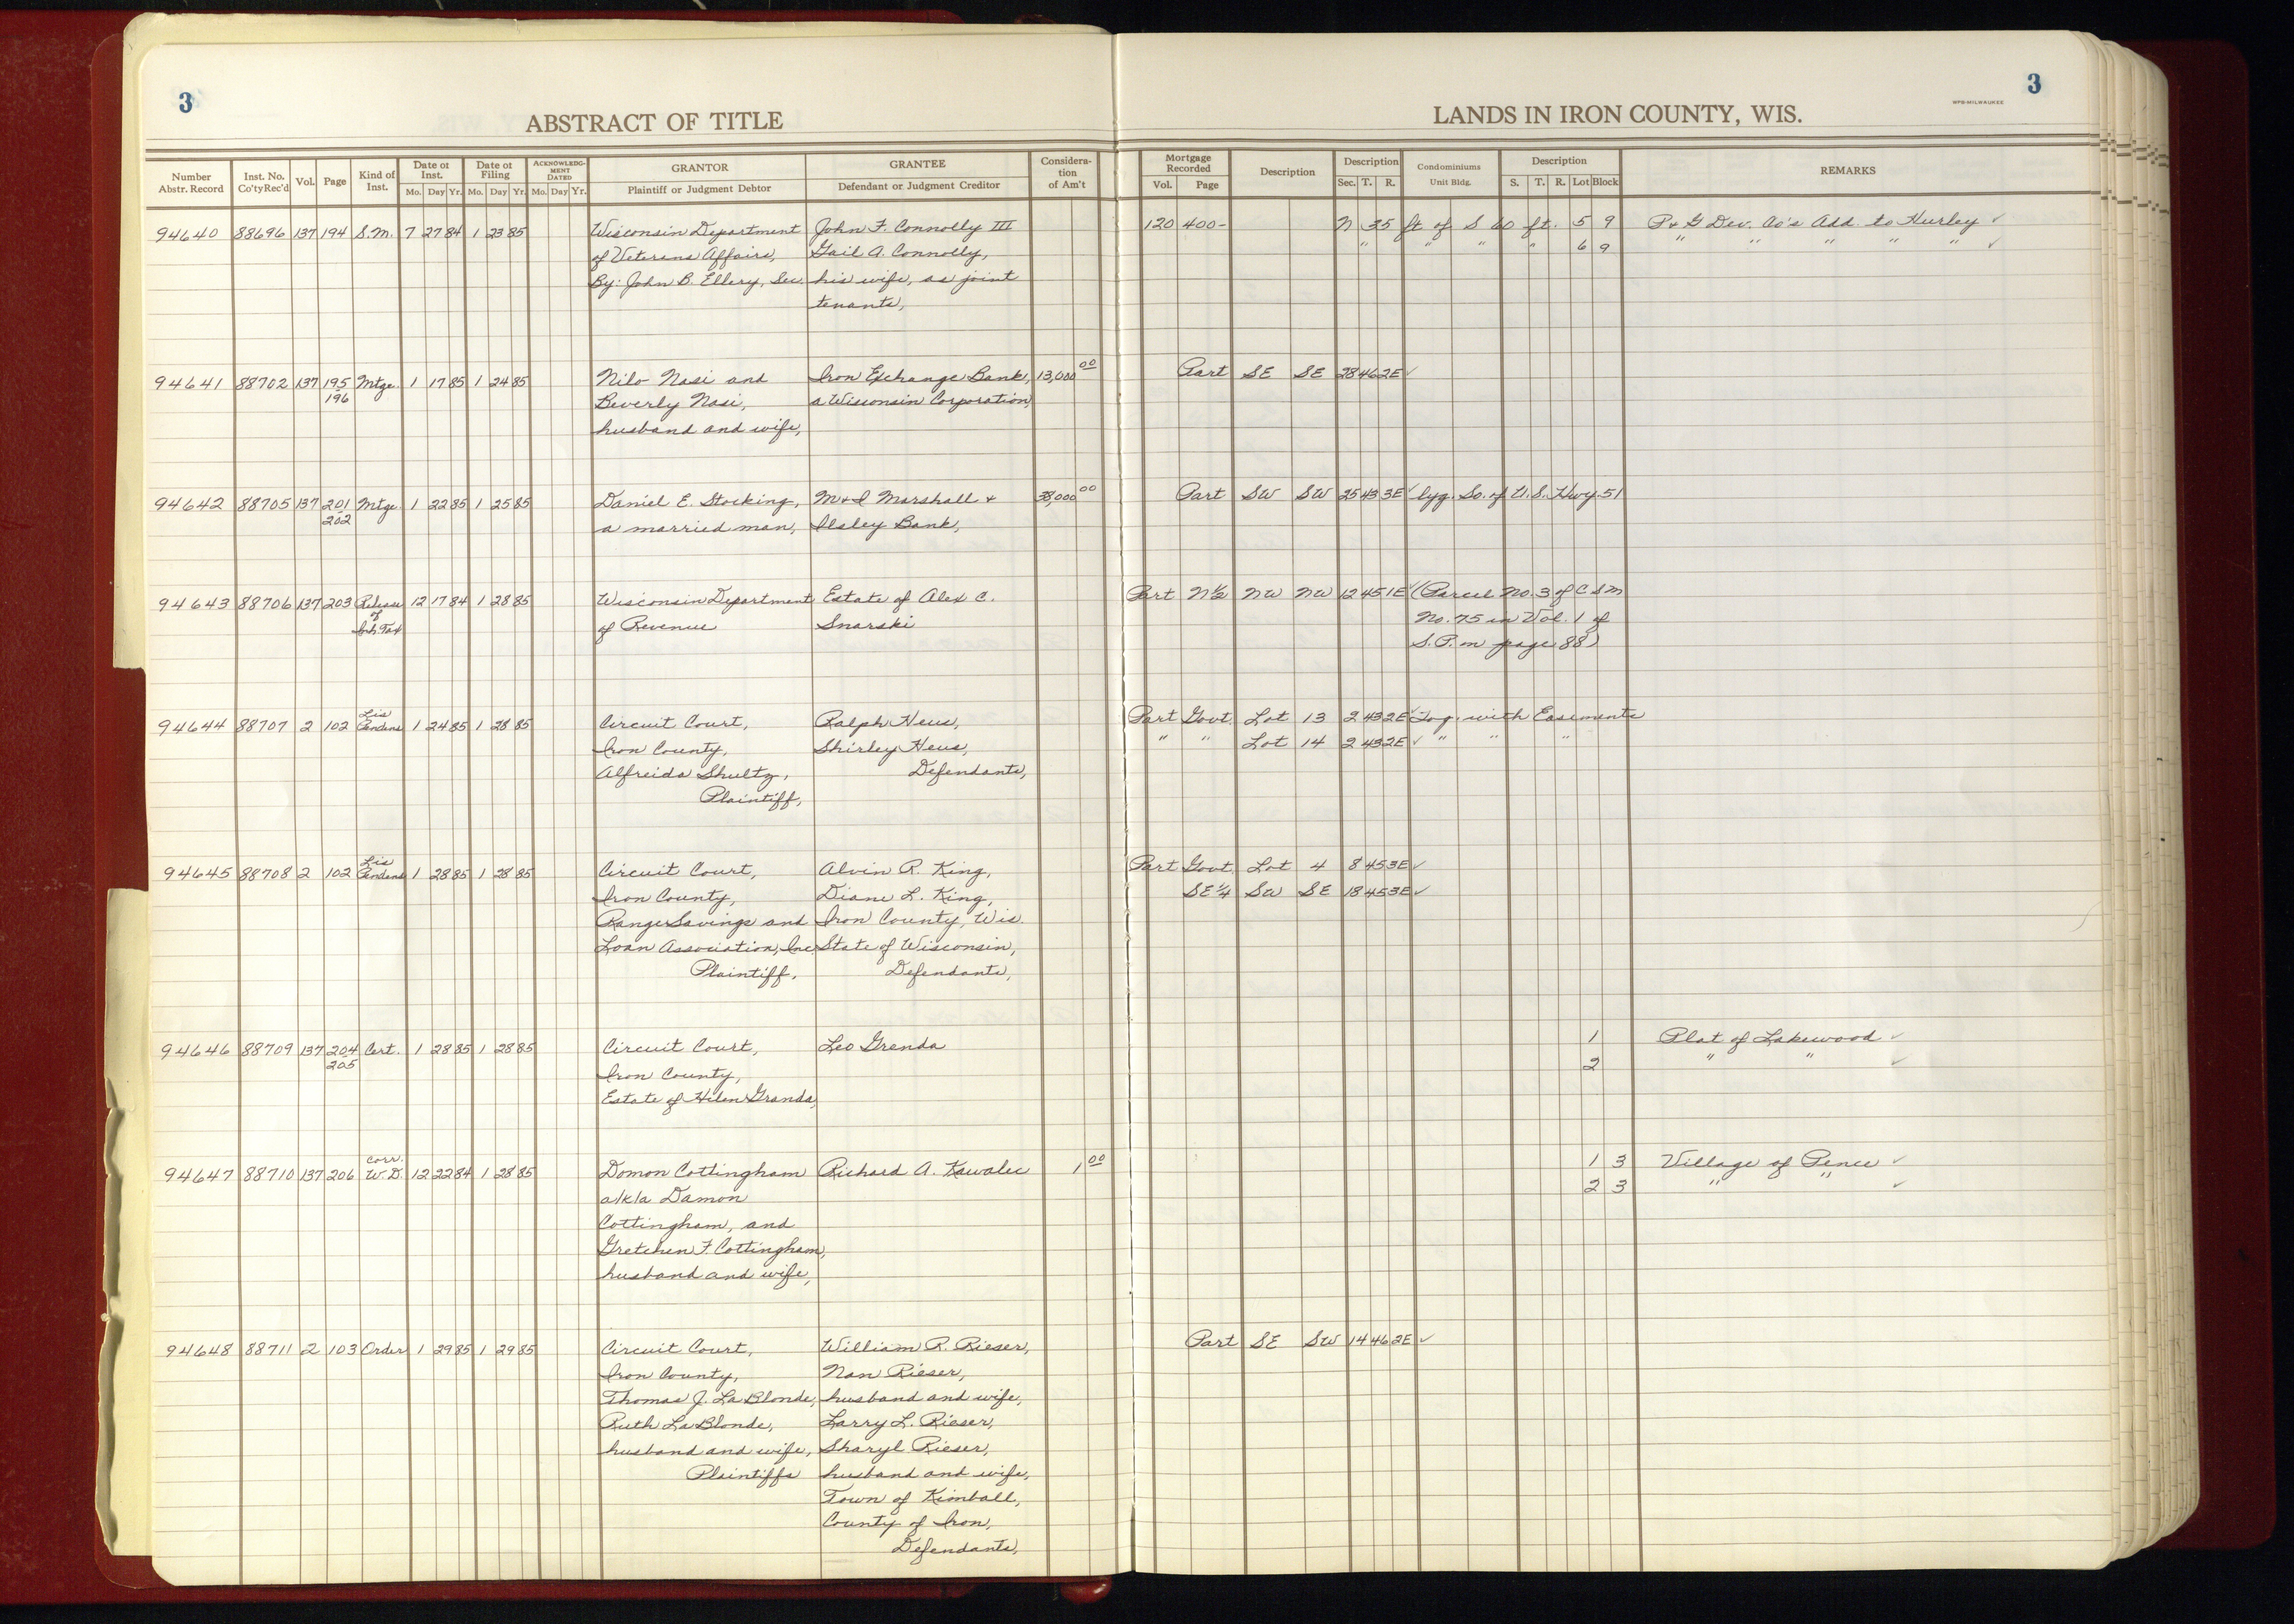 3
ABSTRACT OF TITLE
LANDS IN IRON COUNTY, WIS.
WPB-MILWAUKEE
3
Number Abstr. Record | Inst. No. Co'ty Rec'd | Vol. | Page | Kind of Inst. | Date of Inst. Mo. Day Yr. | Date of Filing Mo. Day Yr. | ACKNOWLEDGMENT DATED Mo. Day Yr. | GRANTOR Plaintiff or Judgment Debtor | GRANTEE Defendant or Judgment Creditor | Consideration of Am't | Mortgage Recorded Vol. Page | Description | Description Sec. T. R. | Condominiums Unit Bldg. | Description S. T. R. Lot Block | REMARKS
94640 88696 137 194 S.M. 7 27 84 1 23 85 Wisconsin Department John F. Connolly III 120 400- N 35 ft of S 60 ft. 5 9 P & G Dev. Co's Add. to Hurley ✓
of Veterans Affairs, Gail A. Connolly, " " " " 6 9 " " " " " ✓
By: John B. Ellery, Sec. his wife, as joint
tenants,
94641 88702 137 195 Mtge. 1 17 85 1 24 85 Nilo Nasi and Iron Exchange Bank, 13,000 00 Part SE SE 28 46 2E ✓
196 Beverly Nasi, a Wisconsin Corporation,
husband and wife,
94642 88705 137 201 Mtge 1 22 85 1 25 85 Daniel E. Stocking, M & I Marshall & 38,000 00 Part SW SW 25 43 3E ✓ lyg. So. of U.S. Hwy. 51
202 a married man, Ilsley Bank,
94643 88706 137 203 Release 12 17 84 1 28 85 Wisconsin Department Estate of Alex C. Part N½ NW NW 12 45 1E ✓ (Parcel No. 3 of C S M
of of Revenue Snarski No. 75 in Vol. 1 of
Inh Tax S. P. on page 88)
94644 88707 2 102 Lis Pendens 1 24 85 1 28 85 Circuit Court, Ralph Heus, Part Govt. Lot 13 2 43 2E ✓ Tog. with Easements
Iron County, Shirley Heus, " " Lot 14 2 43 2E ✓ " " "
Alfreida Shultz, Defendants,
Plaintiff,
94645 88708 2 102 Lis Pendens 1 28 85 1 28 85 Circuit Court, Alvin R. King, Part Govt. Lot 4 8 45 3E ✓
Iron County, Diane L. King, SE¼ SW SE 18 45 3E ✓
Range Savings and Iron County, Wis.
Loan Association, Inc. State of Wisconsin,
Plaintiff, Defendants,
94646 88709 137 204 Cert. 1 28 85 1 28 85 Circuit Court, Leo Grenda 1 Plat of Lakewood ✓
205 Iron County, 2 " " ✓
Estate of Helen Granda,
94647 88710 137 206 Corr. W.D. 12 22 84 1 28 85 Domon Cottingham Richard A. Kawalec 1 00 1 3 Village of Pence ✓
a/k/a Damon 2 3 " " ✓
Cottingham, and
Gretchen F. Cottingham,
husband and wife,
94648 88711 2 103 Order 1 29 85 1 29 85 Circuit Court, William R. Rieser, Part SE SW 14 46 2E ✓
Iron County, Nan Rieser,
Thomas J. La Blonde, husband and wife,
Ruth La Blonde, Larry L. Rieser,
husband and wife, Sharyl Rieser,
Plaintiffs husband and wife,
Town of Kimball,
County of Iron,
Defendants,